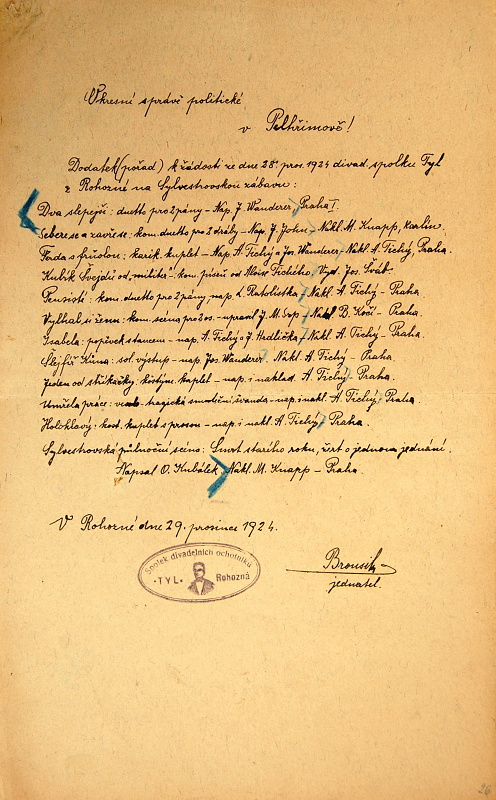 Okresní správě politické
v Pelhřimově!
Dodatek (pořad) k žádosti ze dne 28. pros. 1924 divad. spolku Tyl
z Rohozné na Sylvestrovskou zábavu:
Dva slepejši: duetto pro 2 pány – Nap. J. Wanderer, Praha I.
Sebere se a zavře se: kom. duetto pro 2 dsoby – Nap. J. John, Nákl. M. Knapp, Karlín.
Ferda s frisolou: karik. kuplet – Nap. A. Tichý a Jos. Wanderer, Nákl. A. Tichý, Praha.
Kubík Švejdů od "militer" kom. píseň od Aloise Tichého, Vyd. Jos. Šváb.
Pensisti: kom. duetto pro 2 pány, nap. L. Nákl. A. Tichý – Praha.
si ženu: kom. scéna pro 2 os. – upravil J. M. Nákl. B. Kočí – Praha.
Isabela: popěvek s tancem – nap. A. Tichý a J. Hadlička, Nákl. A. Tichý – Praha.
Šlejfíř Kůna: sol. výstup – nap. Jos. Wanderer, Nákl. A. Tichý – Praha.
Jeden od stříkačky: kostým. kuplet – nap. i náklad. A. Tichý, Praha.
Umřela práce: tragická smuteční švanda – nap. i nákl. A. Tichý, Praha.
Holohlavý: kost. kuplet s prosou – nap. i nákl. A. Tichý, Praha.
Sylvestrovská půlnoční scéna: Smrt starého roku, žert o jednom jednání.
Napsal O. Kubálek, Nákl. M. Knapp – Praha.
V Rohozné dne 29. prosince 1924.
Spolek divadelních ochotníků
• TYL • Rohozná
Brousil
jednatel.
26